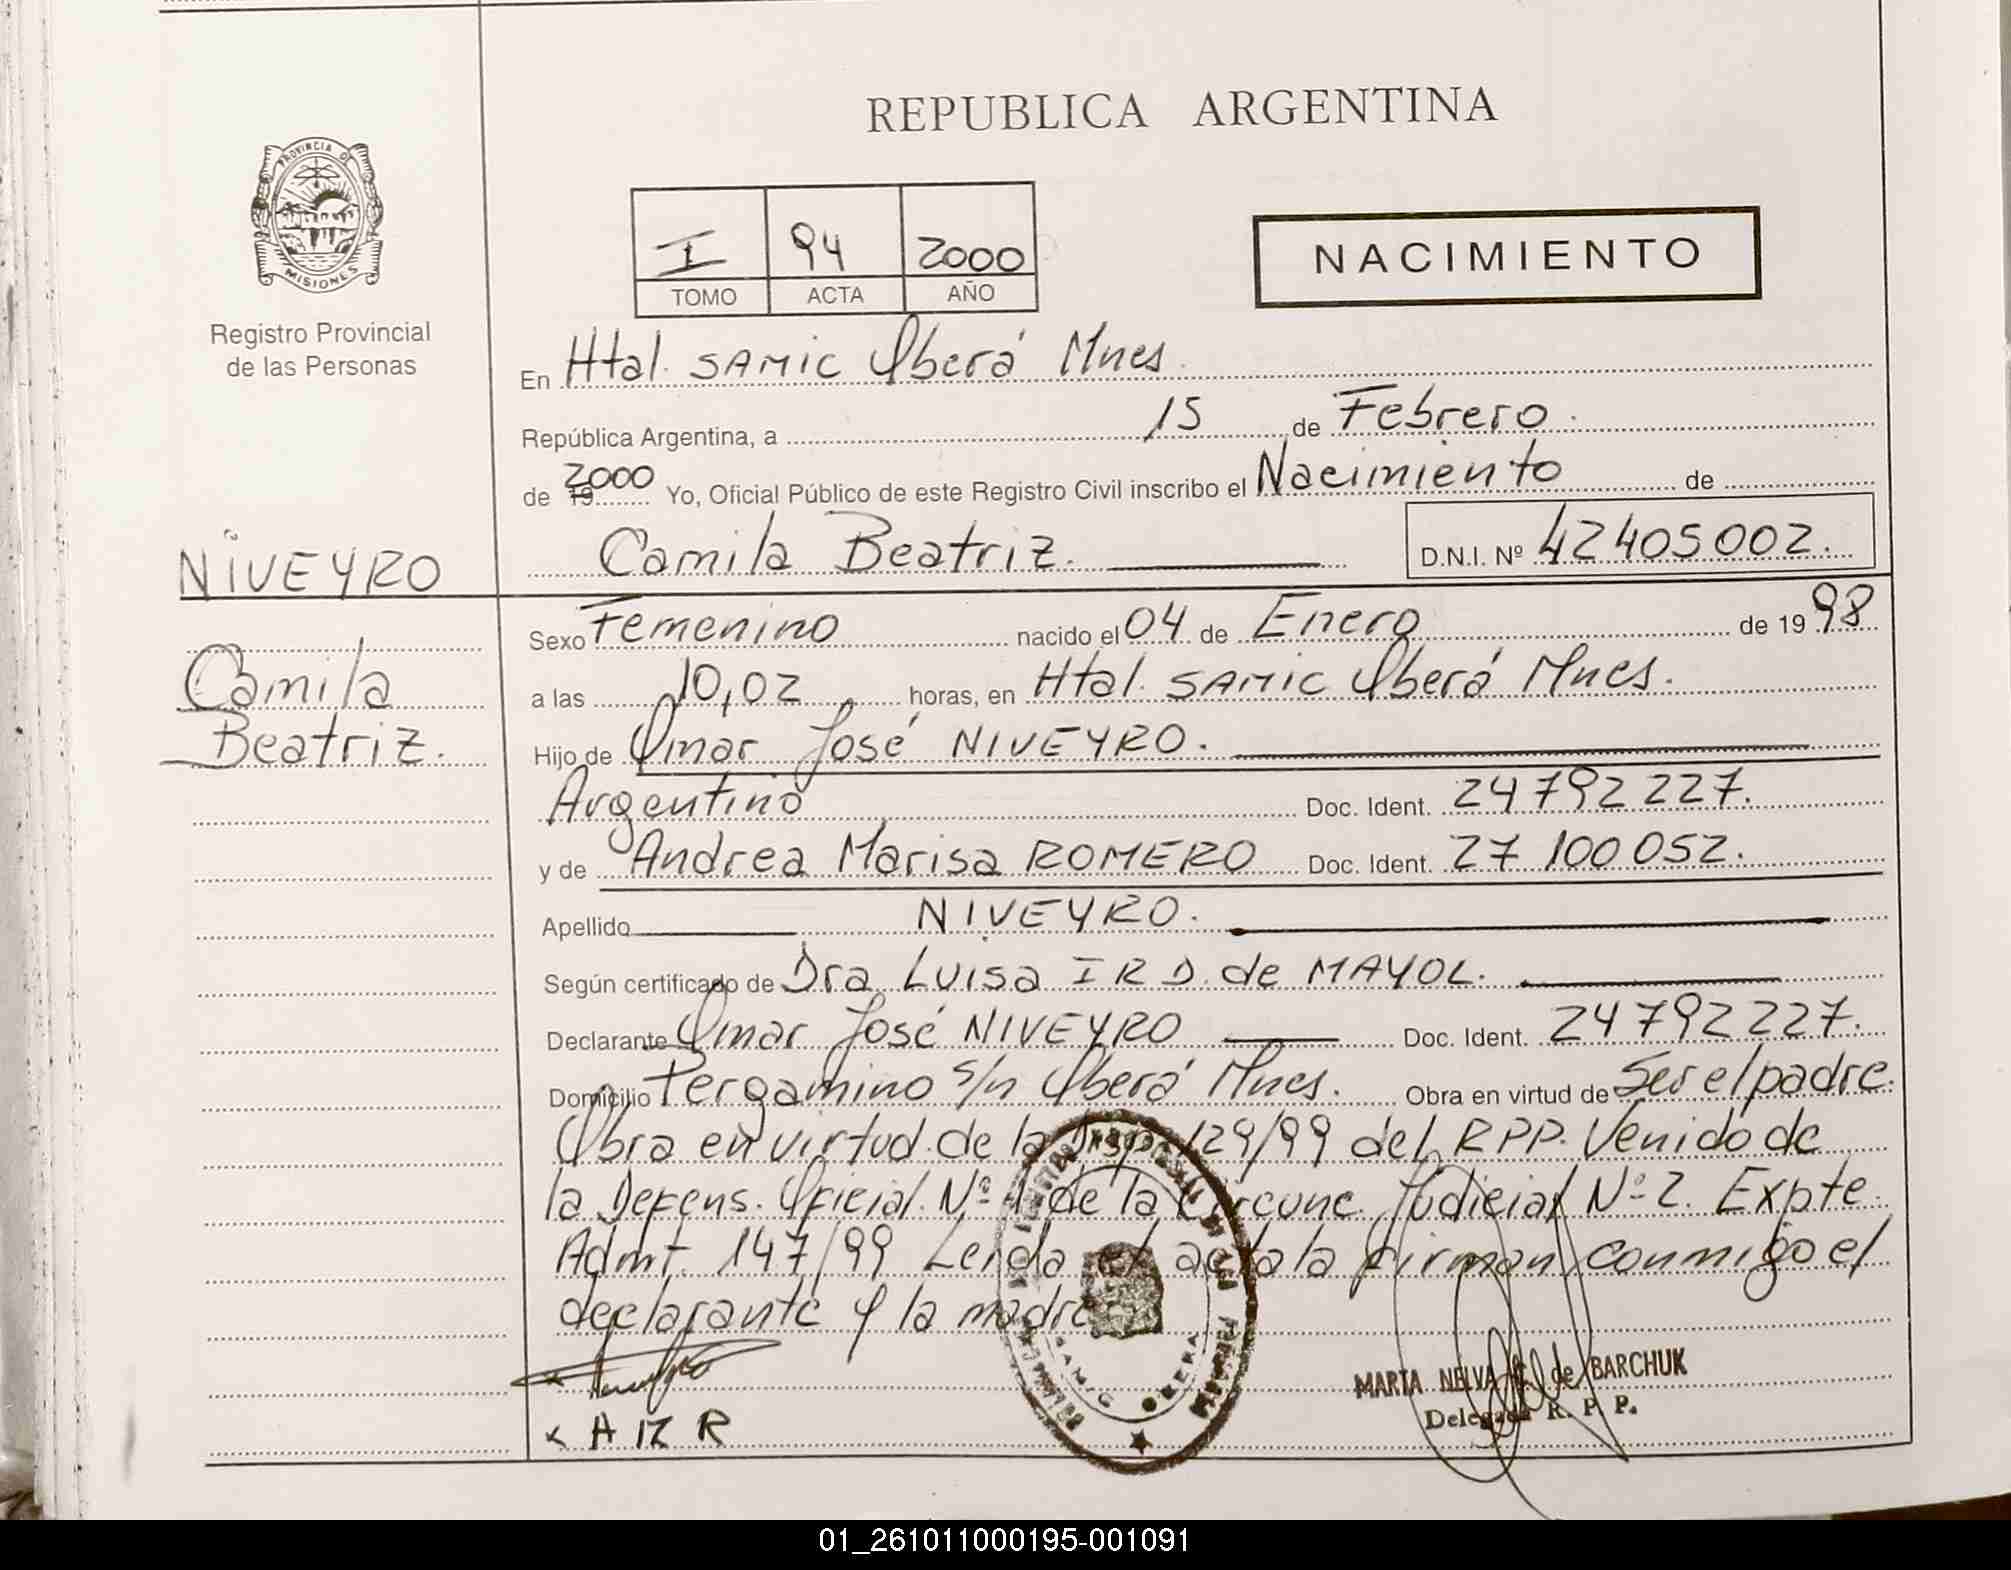 REPUBLICA ARGENTINA
PROVINCIA DE
MISIONES
Registro Provincial
de las Personas
I 94 2000
TOMO ACTA AÑO
NACIMIENTO
En Htal. SAMIC Oberá Mnes.
República Argentina, a 15 de Febrero.
de 19 2000 Yo, Oficial Público de este Registro Civil inscribo el Nacimiento de
Camila Beatriz. D.N.I. Nº 42405002.
NIVEYRO
Camila
Beatriz.
Sexo Femenino nacido el 04 de Enero de 19 98
a las 10,02 horas, en Htal. SAMIC Oberá Mnes.
Hijo de Omar José NIVEYRO.
Argentino Doc. Ident. 24792227.
y de Andrea Marisa ROMERO Doc. Ident. 27 100 052.
Apellido NIVEYRO.
Según certificado de Dra Luisa I R D. de MAYOL.
Declarante Omar José NIVEYRO Doc. Ident. 24792227.
Domicilio Pergamino s/n Oberá Mnes. Obra en virtud de Ser el padre.
Obra en virtud de la 129/99 del RPP. Venido de
la Defens. Oficial Nº 1 de la Circunc. Judicial Nº 2. Expte
Admt. 147/99 Leida el acta la firman conmigo el
declarante y la madre
SAMIC OBERA
MARTA NELVA de BARCHUK
Delegada R. P. P.
x A M R
01_261011000195-001091